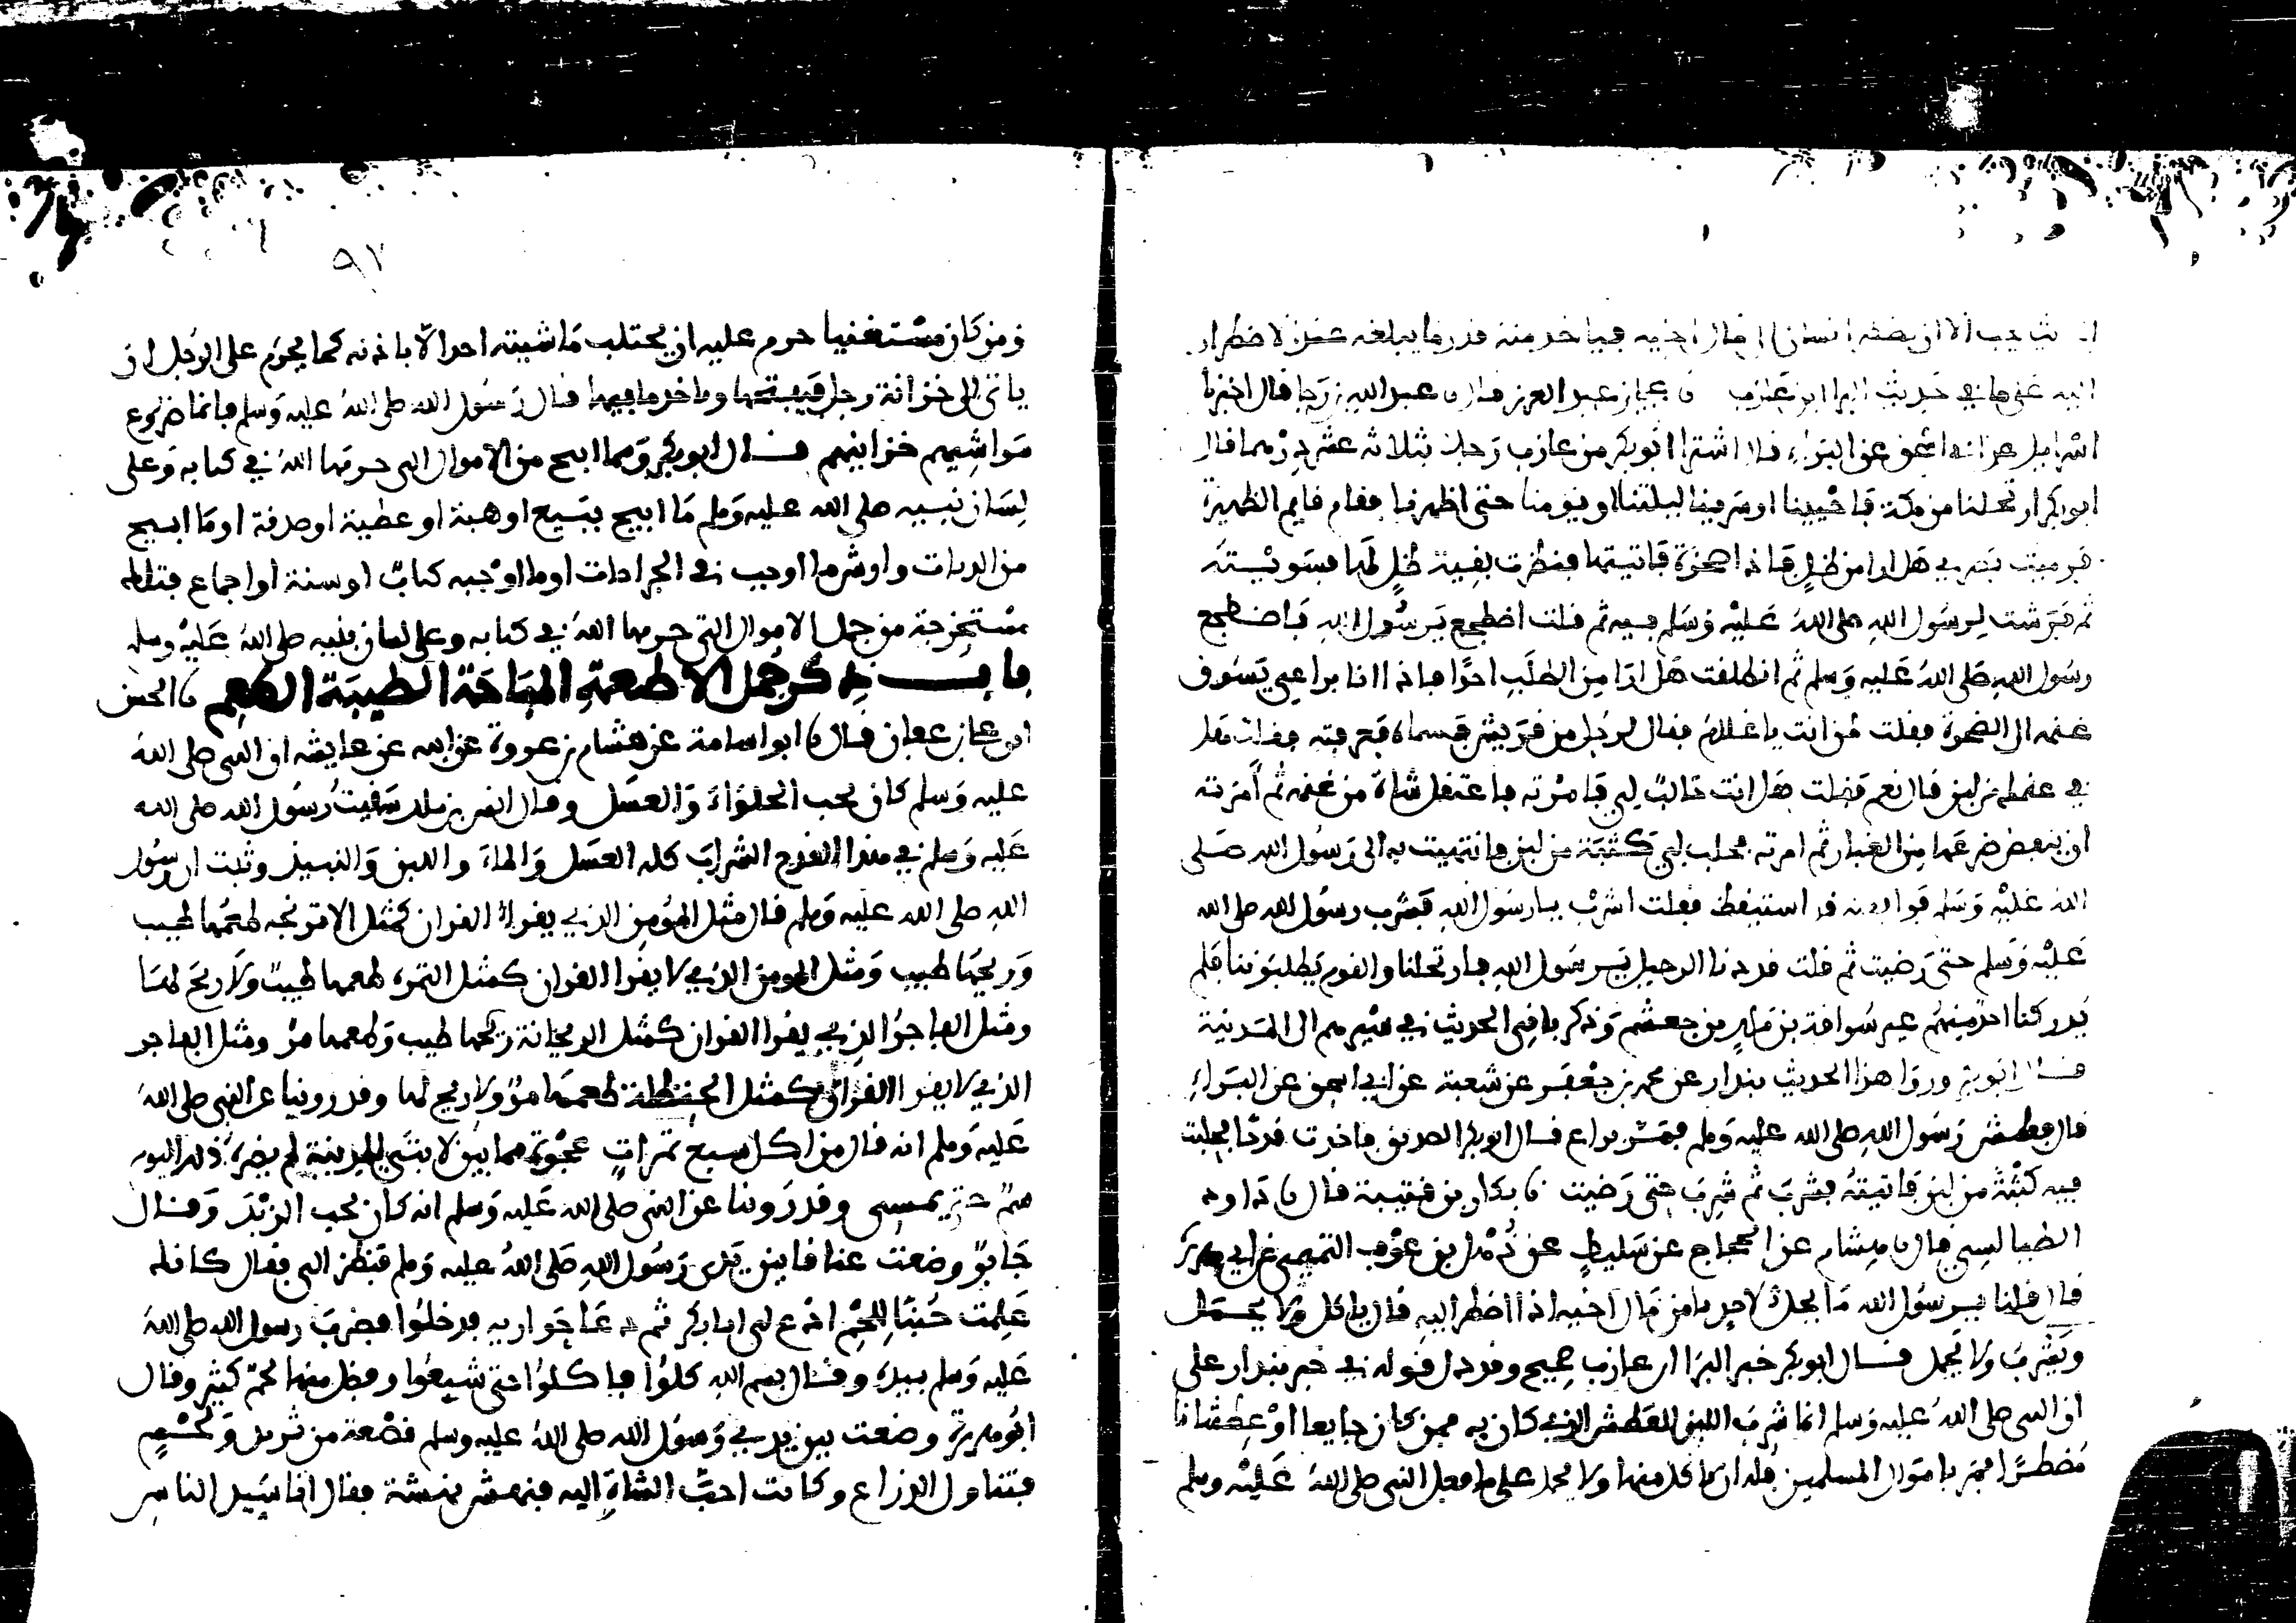 الا ان يضطر انسان الى مال اخيه فياخذ منه قدر ما يبلغه عند الاضطرار
اليه عنها في حديث البرا ابن عازب نا علي بن عبد العزيز قال نا عبد الله بن رجا قال اخبرنا
اسرايل عن ابي اسحق عن البراء قال اشترا ابو بكر من عازب رحلا بثلاثة عشر درهما قال
ابو بكر ارتحلنا من مكة فاحيينا او سرينا ليلتنا او يومنا حتى اظهرنا وقام قايم الظهيرة
فرميت بصري هل ارا من ظل فاذا صخرة فاتيتها فنظرت بقية ظل لها فسويته
ثم فرشت لرسول الله صلى الله عليه وسلم فيه ثم قلت اضطجع يرسول الله فاضطجع
رسول الله صلى الله عليه وسلم ثم انطلقت هل ارا من الطلب احدا فاذا انا براعي يسوق
غنمه الى الصخرة فقلت من انت يا غلام فقال لرجل من قريش فسماه فعرفته فقلت هل
في غنمك من لبن قال نعم فقلت هل انت حالب لي فامرته فاعتقل شاة من غنمه ثم امرته
ان ينفض ضرعها من الغبار ثم امرته فحلب لي كثبة من لبن فانتهيت به الى رسول الله صلى
الله عليه وسلم فوافقته قد استيقظ فقلت اشرب يا رسول الله فشرب رسول الله صلى الله
عليه وسلم حتى رضيت ثم قلت قد دنا الرحيل يرسول الله فارتحلنا والقوم يطلبوننا فلم
يدركنا احد منهم غير سراقة بن مالك بن جعشم وذكر باقي الحديث في مسيرهم الى المدينة
قال ابو بكر وروا هذا الحديث بندار عن محمد بن جعفر عن شعبة عن ابي اسحق عن البراء
قال فعطش رسول الله صلى الله عليه وسلم فمر براع قال ابو بكر الصديق فاخذت قدحا فحلبت
فيه كثبة من لبن فاتيته فشرب ثم شرب حتى رضيت نا بكار بن قتيبة قال نا داود
الطيالسي قال نا هشام عن الحجاج عن سليط عن ذهل بن عوف التميمي عن ابي هريرة
قال قلنا يرسول الله ما يحل لاحدنا من مال اخيه اذا اضطر اليه قال ياكل ولا يحمل
ويشرب ولا يحمل قال ابو بكر خبر البرا ابن عازب صحيح وقد دل قوله في خبر بندار على
ان النبي صلى الله عليه وسلم انما شرب اللبن للعطش الذي كان به فمن كان جايعا او عطشانا
مضطرا فمر باموال المسلمين فله ان ياكل منها ولا يحمل على ما فعل النبي صلى الله عليه وسلم
٩٧
ومن كان مستغنيا حرم عليه ان يحتلب ماشية احد الا باذنه كما يحرم على الرجل ان
ياتي الى خزانة رجل فيفتحها وياخذ ما فيها قال رسول الله صلى الله عليه وسلم فانما ضروع
مواشيهم خزاينهم قال ابو بكر ومما ابيح من الاموال التي حرمها الله في كتابه وعلى
لسان نبيه صلى الله عليه وسلم ما ابيح ببيع او هبة او عطية او صدقة او ما ابيح
من الديات واروش ما اوجب في الجراحات او ما اوجبه كتاب او سنة او اجماع فتلك
مستخرجة من جمل الاموال التي حرمها الله في كتابه وعلى لسان نبيه صلى الله عليه وسلم
باب ذكر جمل الاطعمة المباحة الطيبة الطعم نا الحسن
ابن علي بن عفان قال نا ابو اسامة عن هشام بن عروة عن ابيه عن عايشة ان النبي صلى الله
عليه وسلم كان يحب الحلواء والعسل وقال انس بن ملك سقيت رسول الله صلى الله
عليه وسلم في هذا القدح الشراب كله العسل والماء واللبن والنبيذ وثبت ان رسول
الله صلى الله عليه وسلم قال مثل المؤمن الذي يقرا القران كمثل الاترنجه طعمها طيب
وريحها طيب ومثل المومن الذي لا يقرا القران كمثل التمره طعمها طيب ولا ريح لها
ومثل الفاجر الذي يقرا القران كمثل الريحانة ريحها طيب وطعمها مر ومثل الفاجر
الذي لا يقرا القران كمثل الحنظلة طعمها مر ولا ريح لها وقد روينا عن النبي صلى الله
عليه وسلم انه قال من اكل سبع تمرات عجوة مما بين لابتي المدينة لم يضره ذلك اليوم
سم حتى يمسي وقد روينا عن النبي صلى الله عليه وسلم انه كان يحب الزبد وقال
جابر وضعت عناقا بين يدى رسول الله صلى الله عليه وسلم فنظر الي فقال كانك
علمت حبنا للحم ادع لي ابا بكر ثم دعا حواريه فدخلوا فضرب رسول الله صلى الله
عليه وسلم بيده وقال بسم الله كلوا فاكلوا حتى شبعوا وفضل منها لحم كثير وقال
ابو هريرة وضعت بين يدي رسول الله صلى الله عليه وسلم قصعة من ثريد ولحم
فتناول الذراع وكانت احب الشاة اليه فنهش نهشة فقال انا سيد الناس